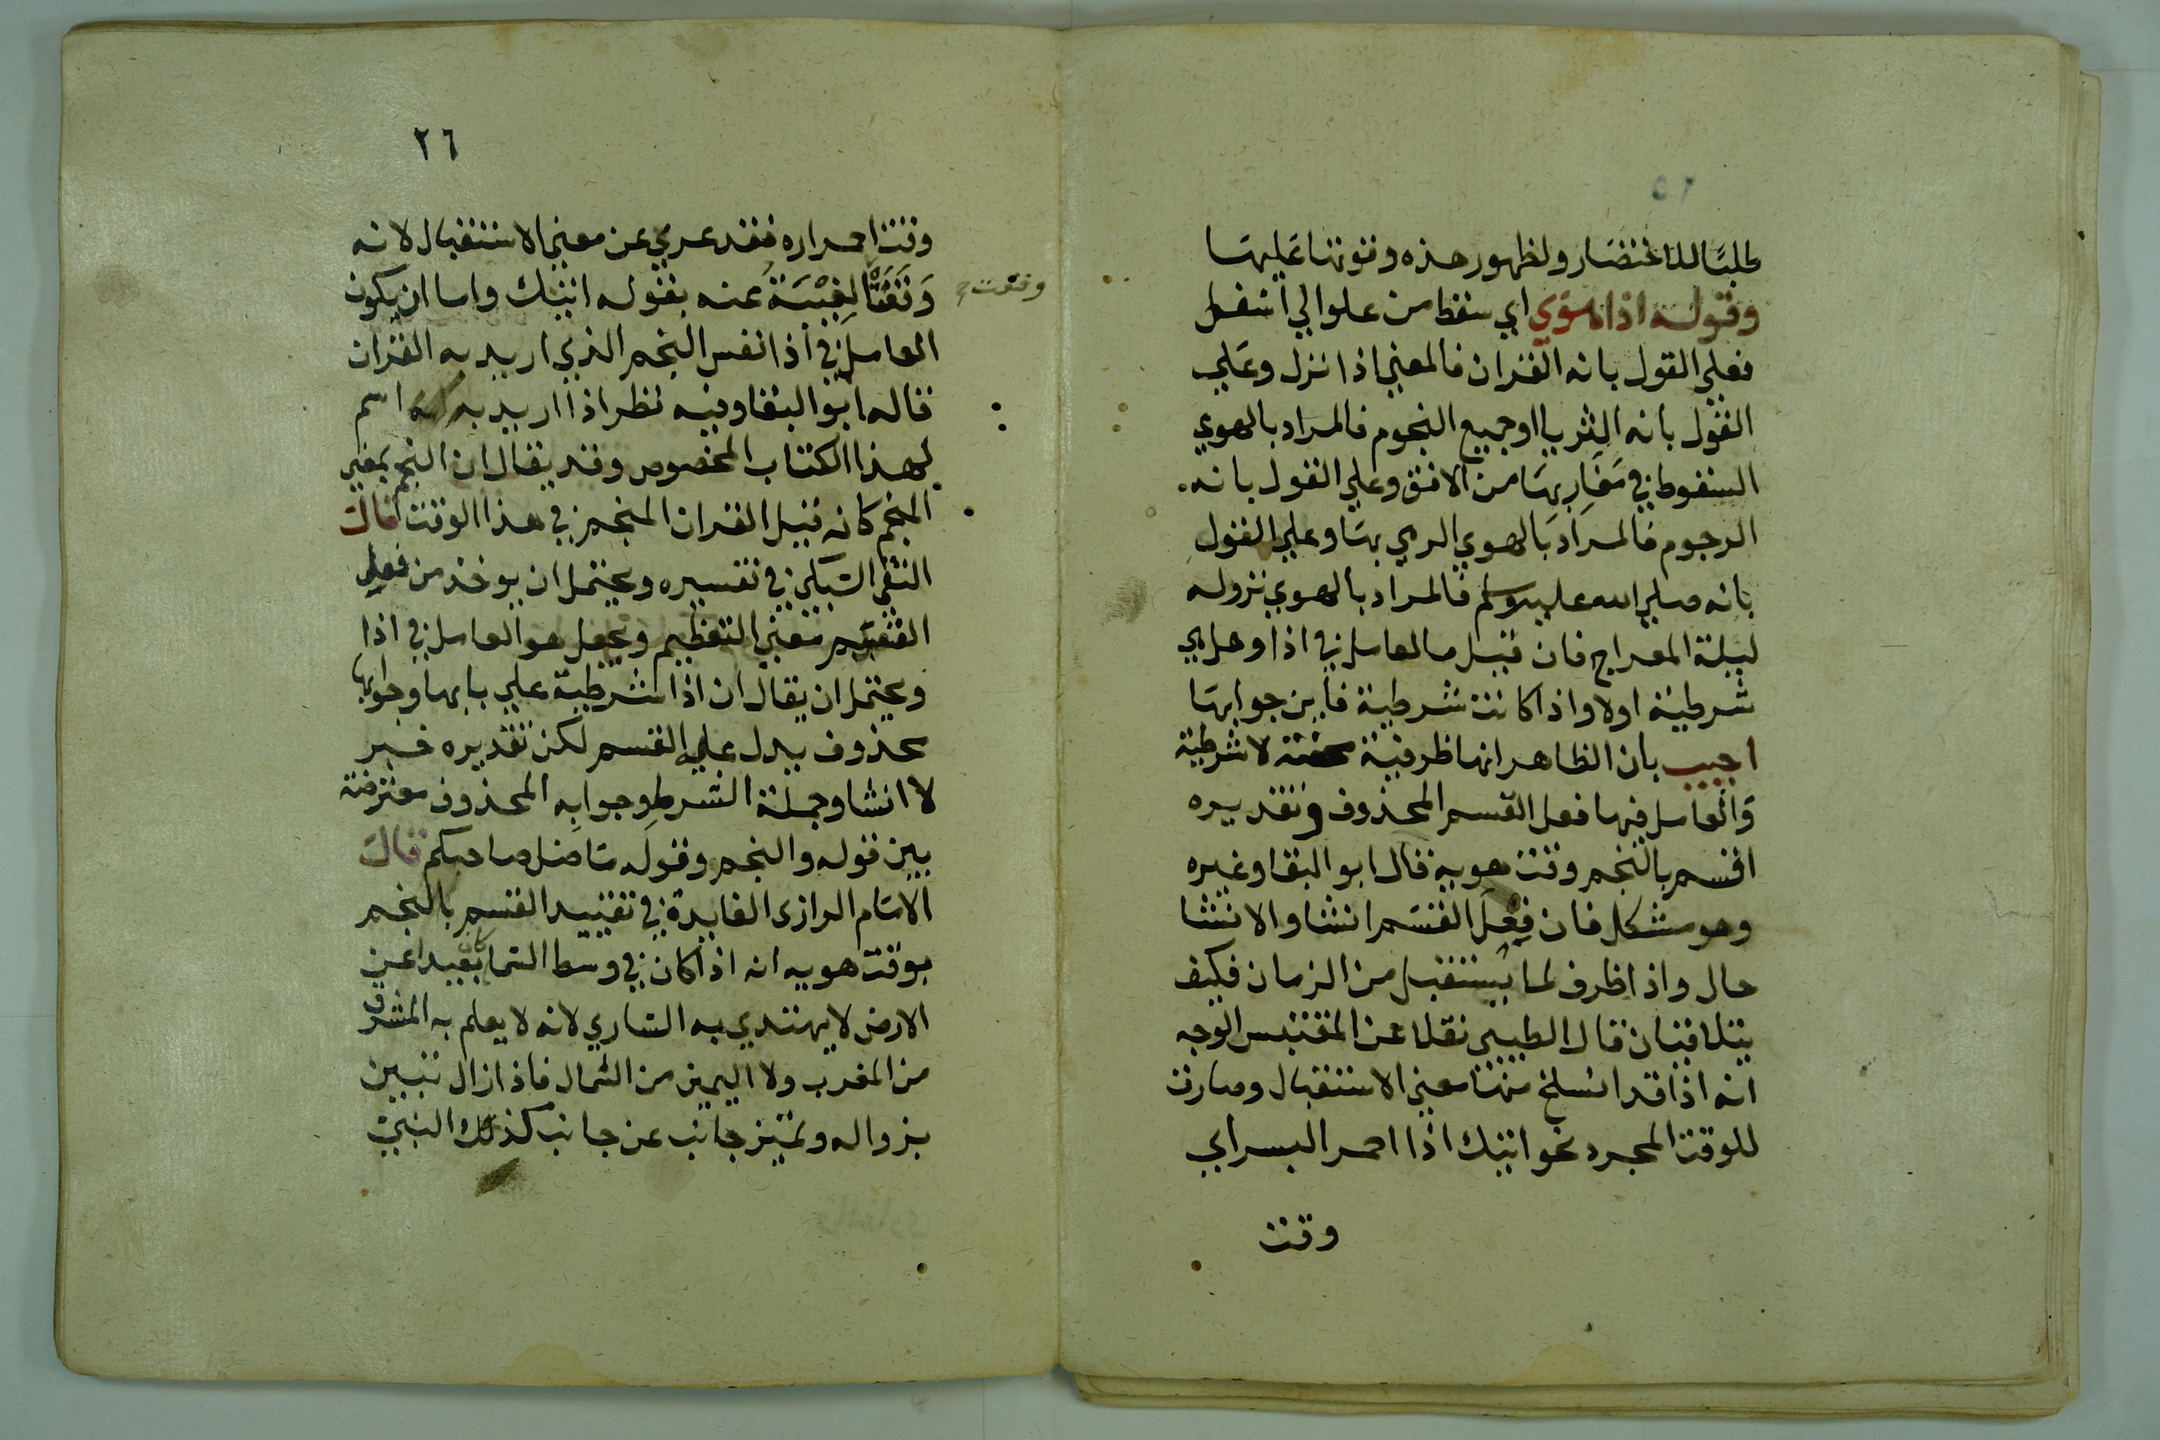 طلبا للاختصار ولظهور هذه وقوتها عليها
وقوله اذا هوي اي سقط من علو الي اسفل
فعلي القول بانه القران فالمعني اذا نزل وعلي
القول بانه الثريا او جميع النجوم فالمراد بالهوي
السقوط في مغاربها من الافق وعلي القول بانه
الرجوم فالمراد بالهوي الرمي بها وعلي القول
بانه صلي الله عليه وسلم فالمراد بالهوي نزوله
ليلة المعراج فان قيل ما العامل في اذا وهل هي
شرطية اولا واذا كانت شرطية فاين جوابها
اجيب بان الظاهر انها ظرفية لا شرطية
والعامل فيها فعل القسم المحذوف وتقديره
اقسم بالنجم وقت هويه قال ابو البقا وغيره
وهو مشكل فان فعل القسم انشا والانشا
حال واذا ظرف لما يستقبل من الزمان فكيف
يتلاقيان قال الطيبي نقلا عن المقتبس الوجه
انه اذا قد انسلخ منها معني الاستقبال وصارت
للوقت المجرد نحو اتيك اذا احمر البسر اي
وقت
٢٦
وقت احمراره فقد عري عن معني الاستقبال لانه
وقعت
لغيبة عنه بقوله اتيك واما ان يكون
العامل في اذا نفس النجم الذي اريد به القران
قاله ابو البقا وفيه نظر اذا اريد به انه اسم
لهذا الكتاب المخصوص وقد يقال ان النجم بمعني
المنجم كانه قيل القران المنجم في هذا الوقت قال
التقي السبكي في تفسيره ويحتمل ان يوخذ من فعل
القسم معني التعظيم ويجعل هو العامل في اذا
ويحتمل ان يقال ان اذا شرطية علي بابها وجوابها
محذوف يدل عليه القسم لكن تقديره خبر
لا انشا وجملة الشرط وجوابه المحذوف معترضة
بين قوله والنجم وقوله ما ضل صاحبكم قال
الامام الرازي الفايدة في تقييد القسم بالنجم
بوقت هويه انه اذا كان في وسط السما كان بعيدا عن
الارض لا يهتدي به الساري لانه لا يعلم به المشرق
من المغرب ولا اليمين من الشمال فاذا زال تبين
بزواله وتميز جانب عن جانب كذلك النبي